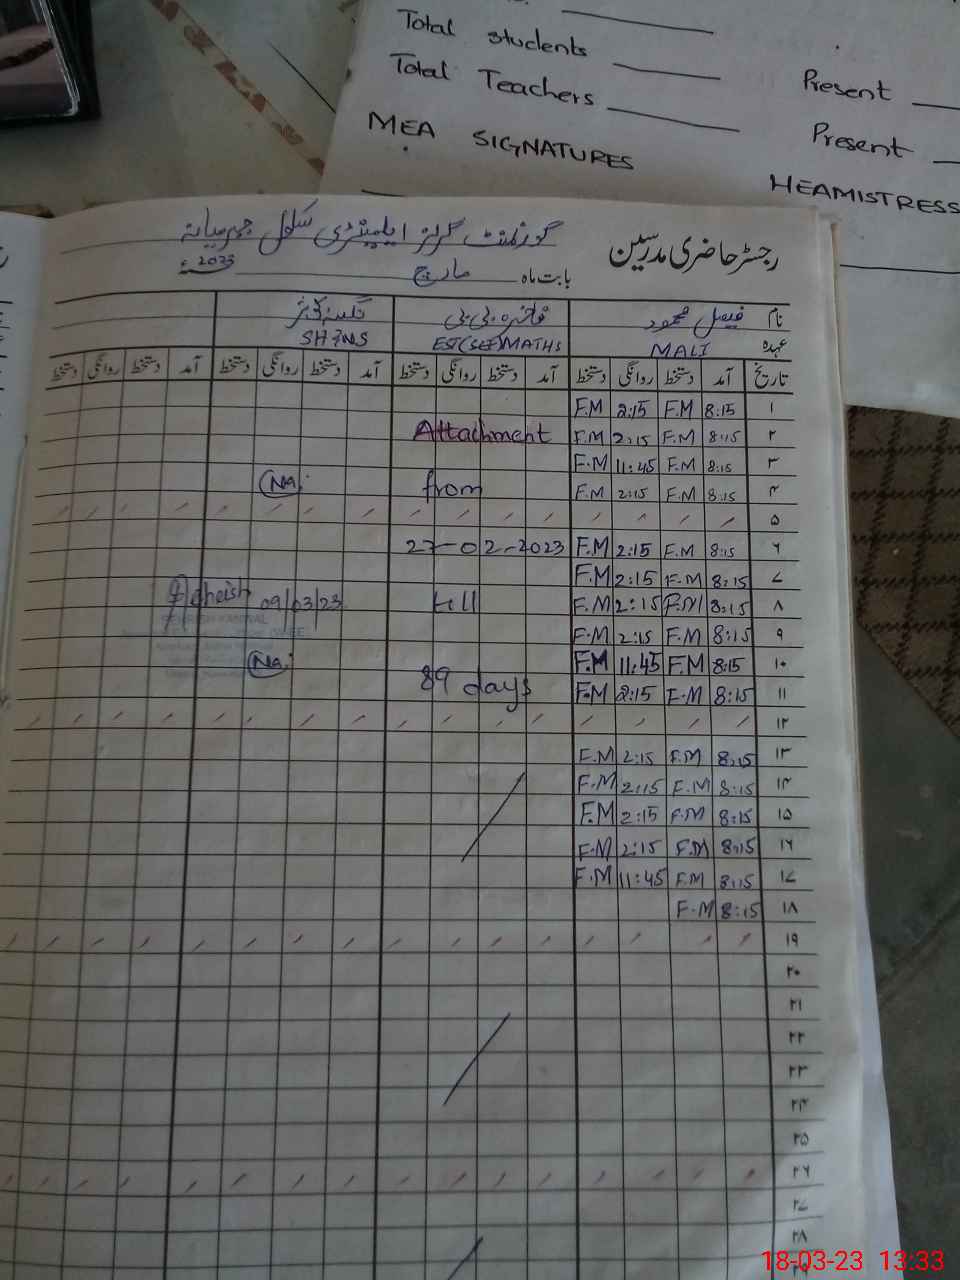 Total students
Present
Total Teachers
Present
MEA SIGNATURES
HEAMISTRESS
رجسٹر حاضری مدرسین
گورنمنٹ گرلز ایلیمنٹری سکول
بابت ماہ مارچ 2023ء
نام فیصل محمود
عہدہ MALI EST(SEF)MATHS
تاریخ آمد دستخط روانگی دستخط آمد دستخط روانگی دستخط آمد دستخط روانگی دستخط آمد دستخط روانگی دستخط
۱ 8:15 F.M 2:15 F.M
۲ 8:15 F.M 2:15 F.M Attachment
۳ 8:15 F.M 11:45 F.M
۴ 8:15 F.M 2:15 F.M from NA
۵
۶ 8:15 F.M 2:15 F.M 27-02-2023
۷ 8:15 F.M 2:15 F.M
۸ 8:15 F.M 2:15 F.M till 09/03/23
۹ 8:15 F.M 2:15 F.M
۱۰ 8:15 F.M 11:45 F.M NA
۱۱ 8:15 F.M 2:15 F.M 89 days
۱۲
۱۳ 8:15 F.M 2:15 F.M
۱۴ 8:15 F.M 2:15 F.M
۱۵ 8:15 F.M 2:15 F.M
۱۶ 8:15 F.M 2:15 F.M
۱۷ 8:15 F.M 11:45 F.M
۱۸ 8:15 F.M
۱۹
۲۰
۲۱
۲۲
۲۳
۲۴
۲۵
۲۶
۲۷
۲۸
18-03-23 13:33